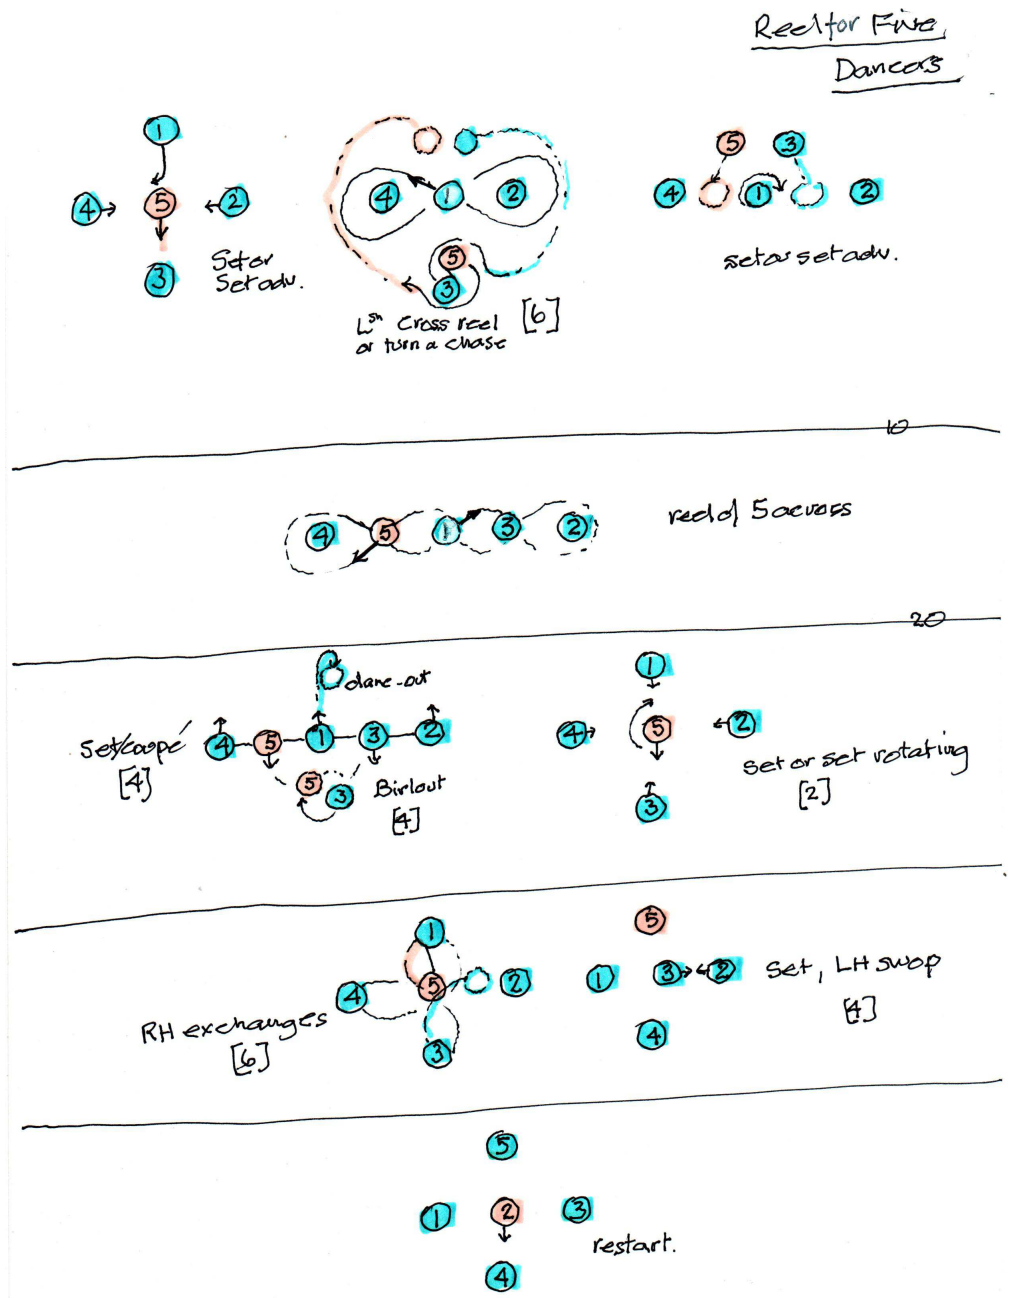 Reel for Five
Dancers
1
4 5 2
3
Set or
Set adv.
4 1 2
5
3
Lsh Cross reel
or turn a chase
[6]
5 3
4 1 2
set or set adv.
10
4 5 1 3 2
reel of 5 across
20
dance-out
set/coupé
[4]
4 5 1 3 2
5 3
Birl out
[4]
1
4 5 2
3
set or set rotating
[2]
1
4 5 2
3
RH exchanges
[6]
5
1 3 2
4
Set, LH swop
[4]
5
1 2 3
4
restart.